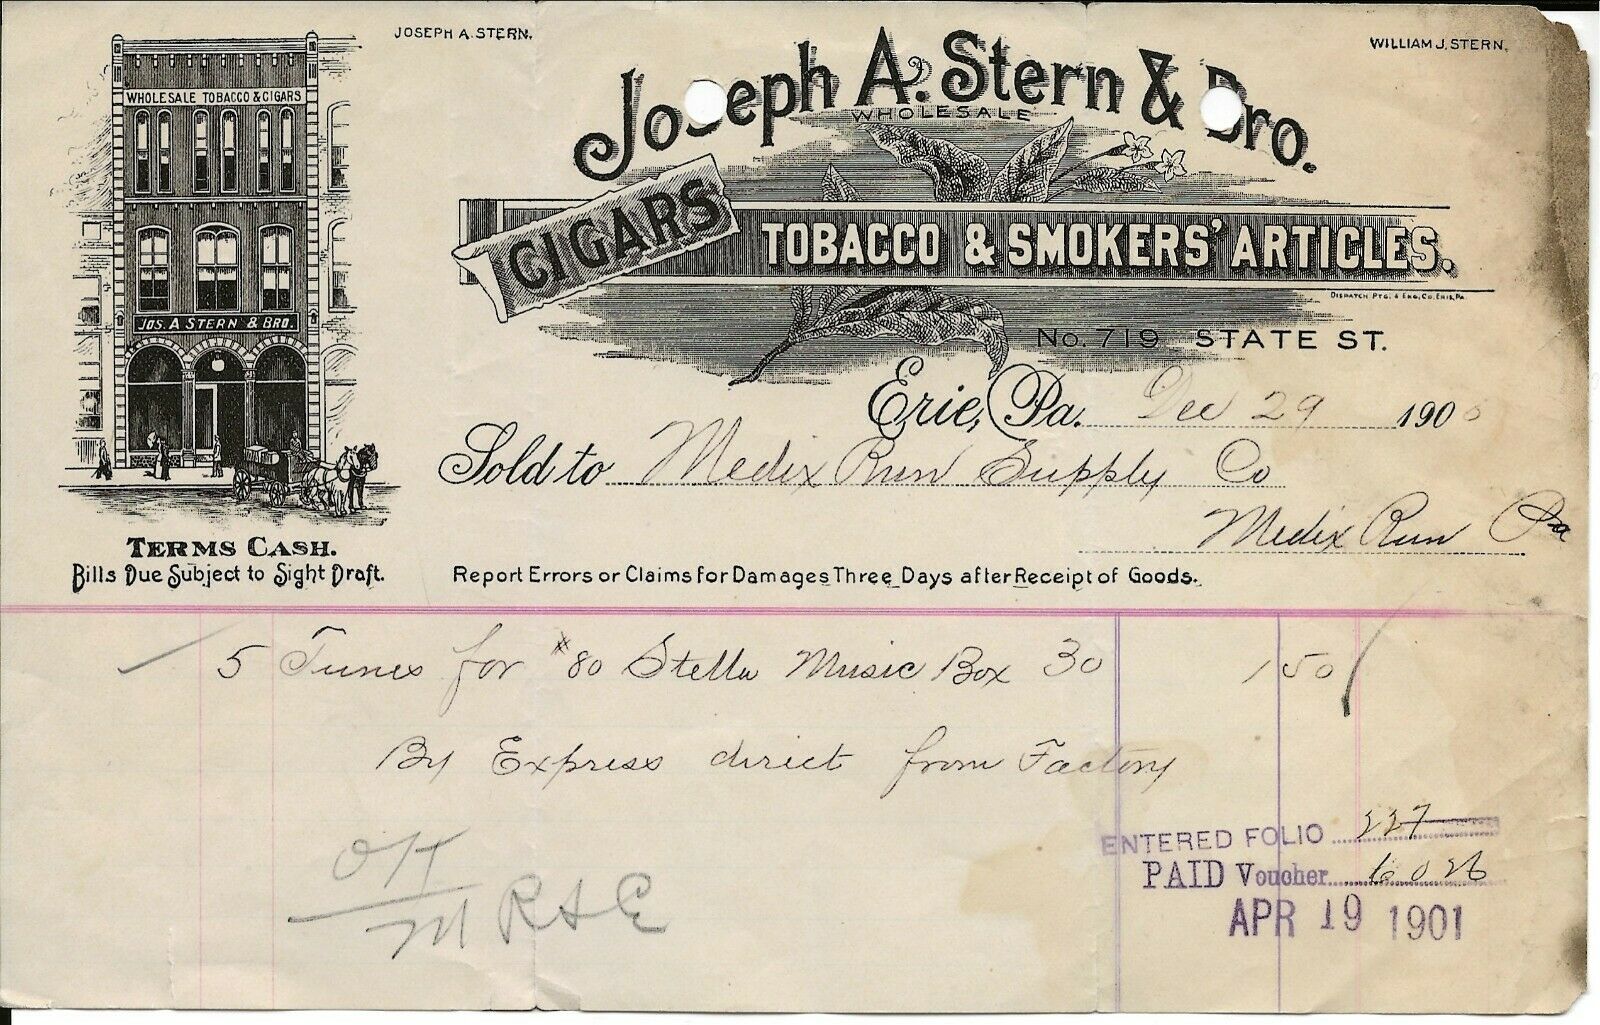 JOSEPH A. STERN.
WILLIAM J. STERN.
Joseph A. Stern & Bro.
WHOLESALE
CIGARS
TOBACCO & SMOKERS' ARTICLES.
DISPATCH PTG. & ENG. CO. ERIE, PA.
WHOLESALE TOBACCO & CIGARS
JOS. A STERN & BRO.
No. 719 STATE ST.
Erie, Pa. Dec 29 1900
Sold to Medix Run Supply Co
Medix Run Pa
TERMS CASH.
Bills Due Subject to Sight Draft.
Report Errors or Claims for Damages Three Days after Receipt of Goods.
5 Tunes for #80 Stella Music Box 30 1 50
By Express direct from Factory
ENTERED FOLIO 227
PAID Voucher 6026
APR 19 1901
OK